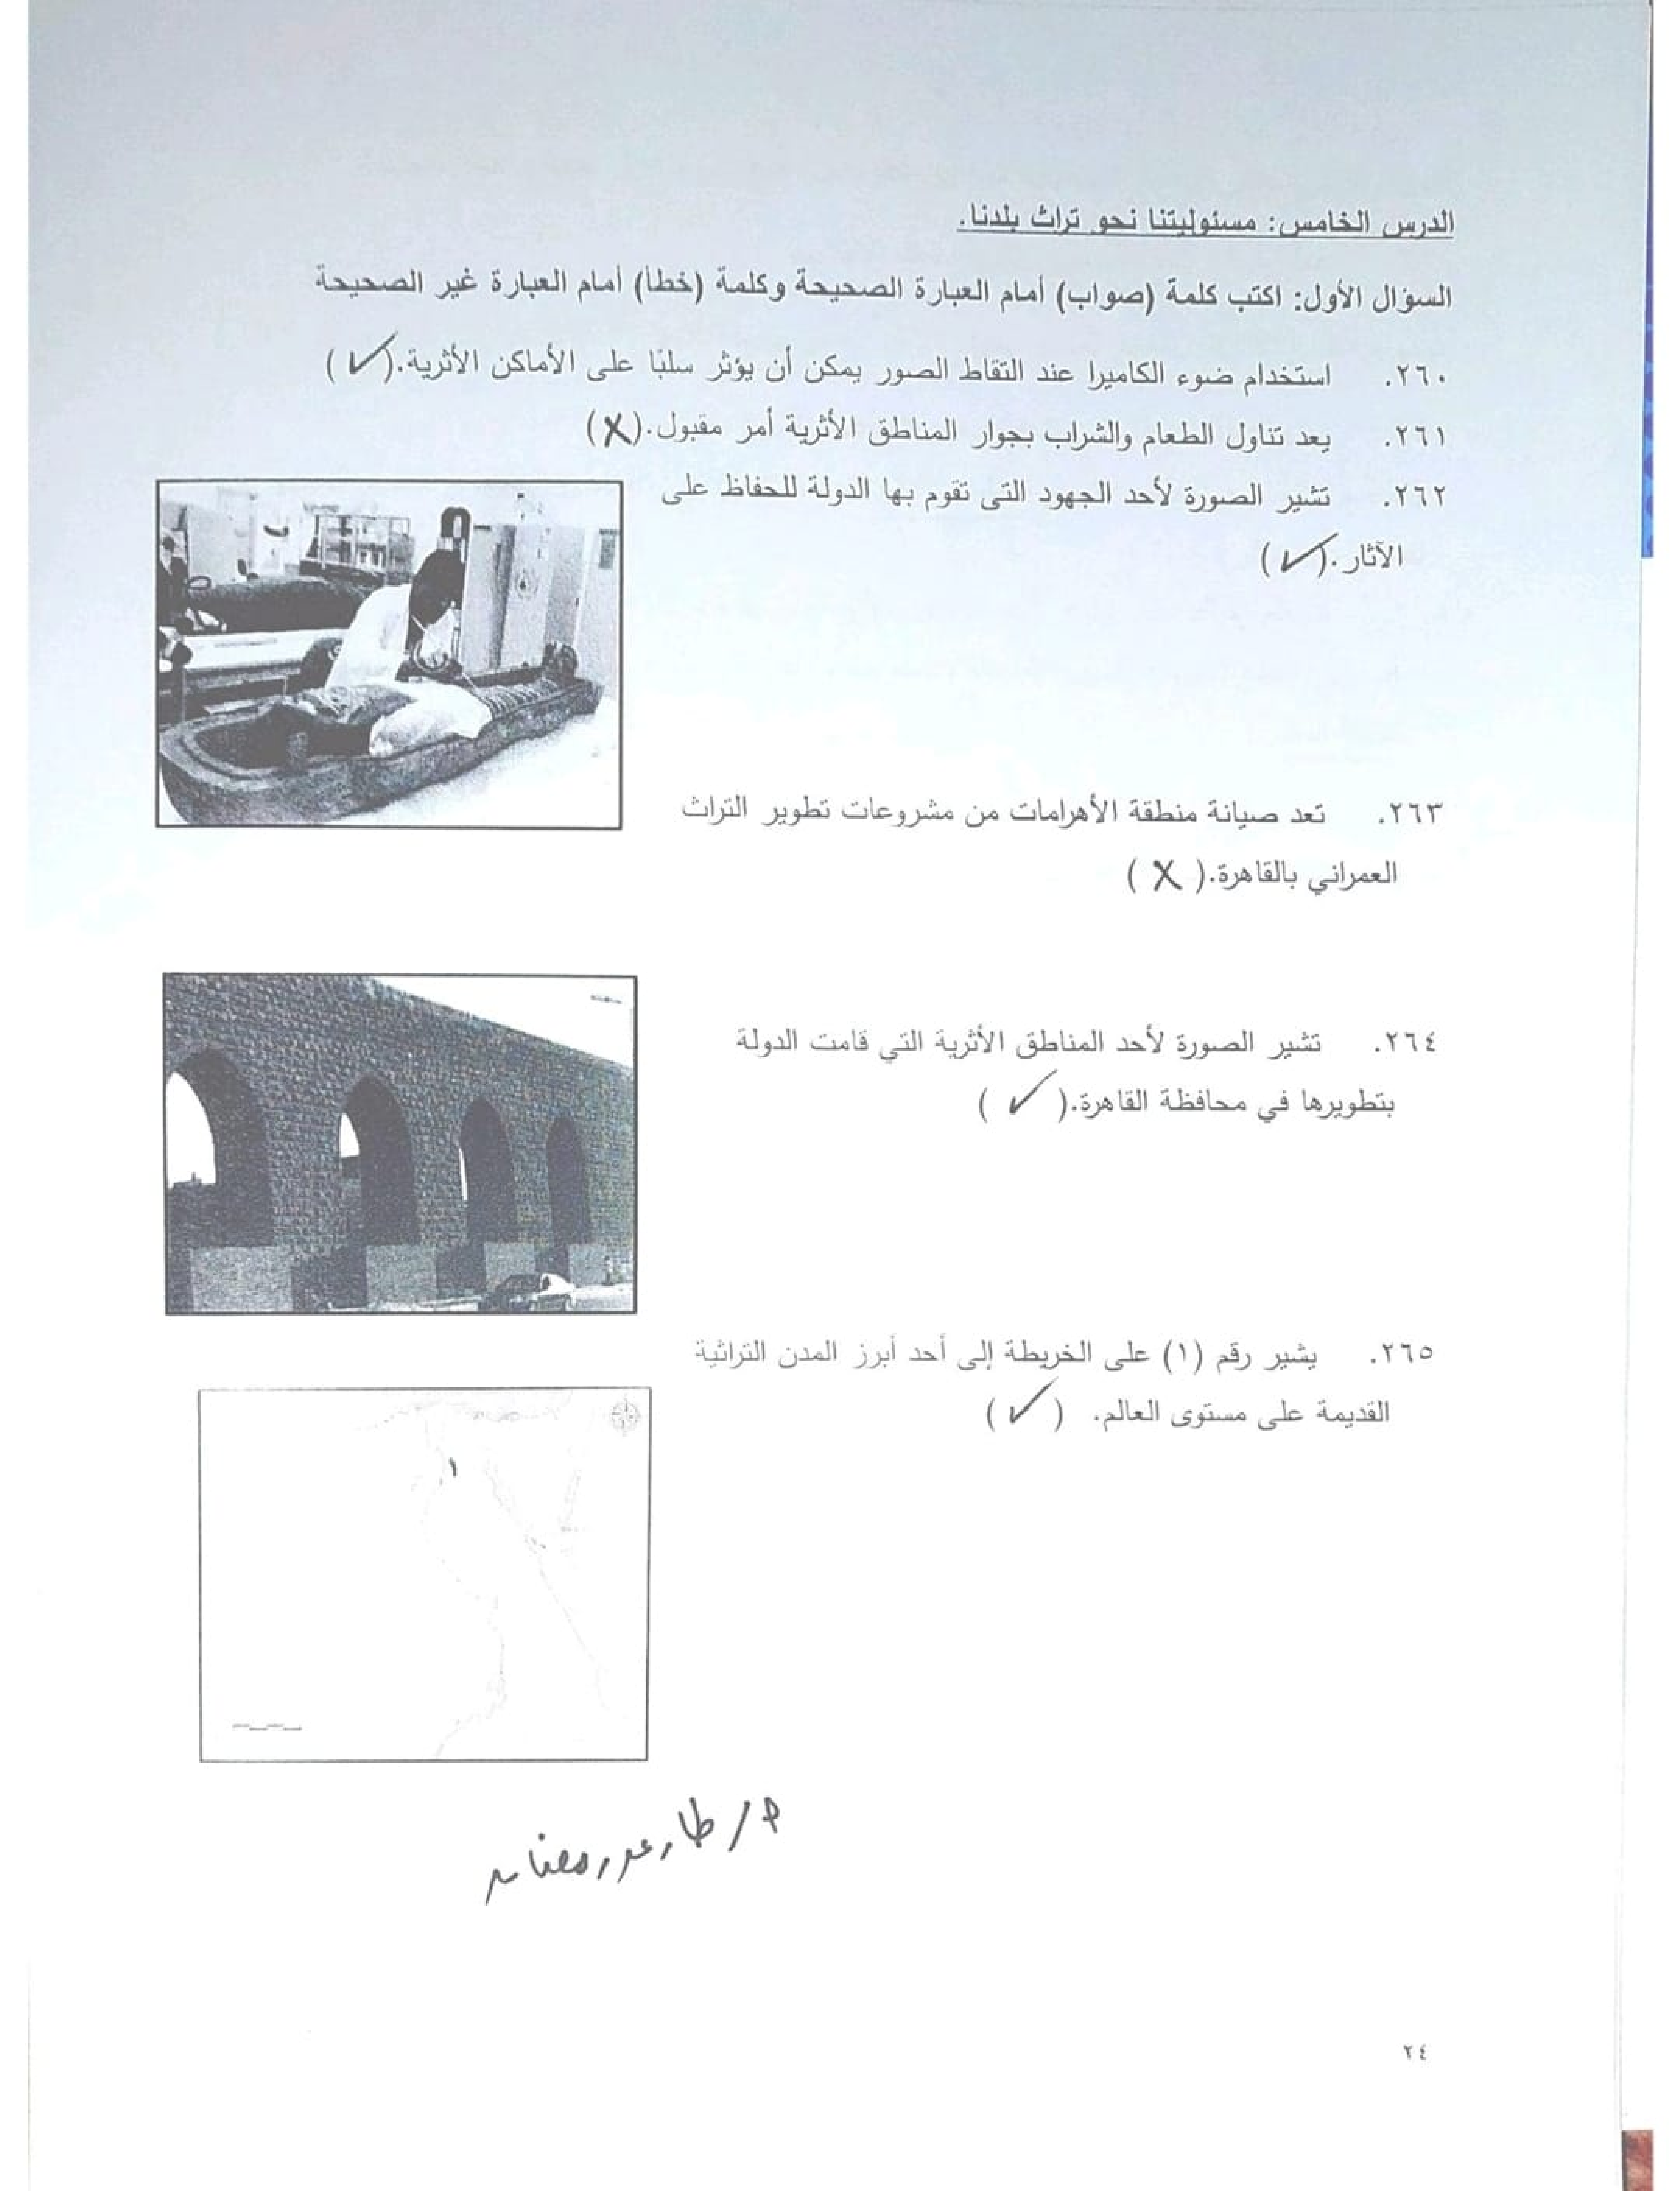 الدرس الخامس: مسئوليتنا نحو تراث بلدنا.
السؤال الأول: اكتب كلمة (صواب) أمام العبارة الصحيحة وكلمة (خطأ) أمام العبارة غير الصحيحة
٢٦٠. استخدام ضوء الكاميرا عند التقاط الصور يمكن أن يؤثر سلبًا على الأماكن الأثرية.(✓)
٢٦١. يعد تناول الطعام والشراب بجوار المناطق الأثرية أمر مقبول.(X)
٢٦٢. تشير الصورة لأحد الجهود التى تقوم بها الدولة للحفاظ على
الآثار.(✓)
٢٦٣. تعد صيانة منطقة الأهرامات من مشروعات تطوير التراث
العمراني بالقاهرة.( X )
٢٦٤. تشير الصورة لأحد المناطق الأثرية التي قامت الدولة
بتطويرها في محافظة القاهرة.( ✓ )
٢٦٥. يشير رقم (١) على الخريطة إلى أحد أبرز المدن التراثية
القديمة على مستوى العالم. ( ✓ )
١
٢٤